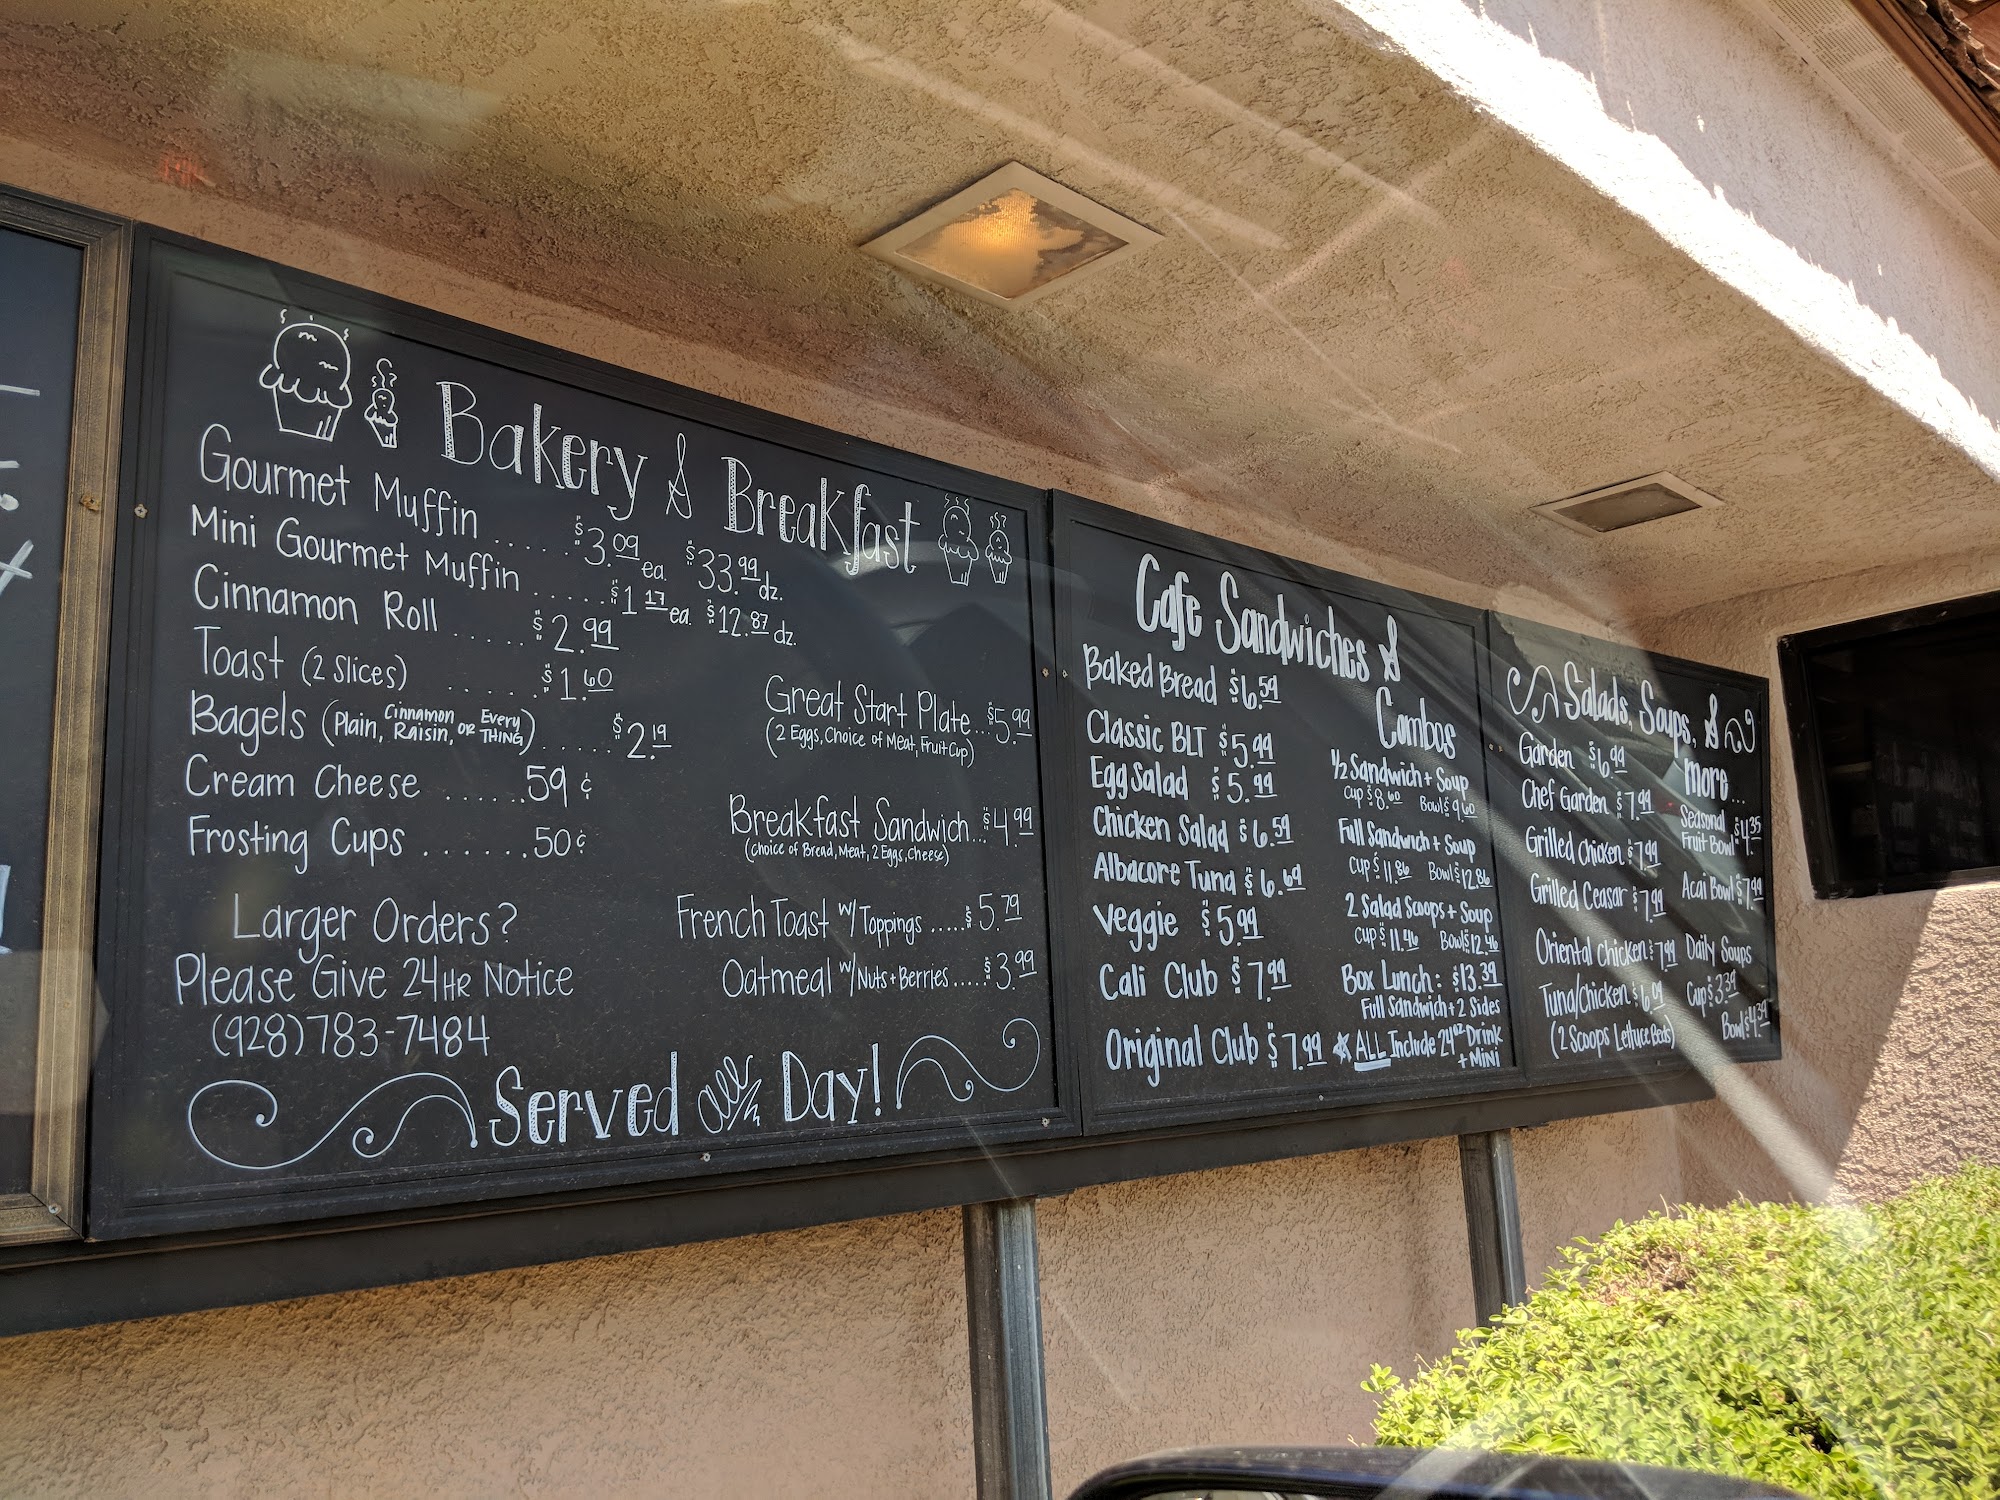 Bakery & Breakfast
Gourmet Muffin ...... $3.09 ea. $33.99 dz.
Mini Gourmet Muffin ...... $1 17 ea. $12.87 dz.
Cinnamon Roll ...... $2.99
Toast (2 Slices) ...... $1.60
Bagels (Plain, Cinnamon Raisin, OR Every THING) ...... $2.19
Cream Cheese ...... 59¢
Frosting Cups ...... 50¢
Larger Orders?
Please Give 24 HR Notice
(928)783-7484
Great Start Plate...$5.99
(2 Eggs, Choice of Meat, Fruit Cup)
Breakfast Sandwich...$4.99
(choice of Bread, Meat, 2 Eggs, Cheese)
French Toast w/ Toppings .....$5.79
Oatmeal w/ Nuts + Berries.....$3.99
Served Day!
Cafe Sandwiches &
Combos
Baked Bread $6.59
Classic BLT $5.99
Egg Salad $5.99
Chicken Salad $6.59
Albacore Tuna $6.69
Veggie $5.99
Cali Club $7.99
Original Club $7.99
1/2 Sandwich + Soup
Cup $8.60 Bowl $9.60
Full Sandwich + Soup
Cup $11.86 Bowl $12.86
2 Salad Scoops + Soup
Cup $11.46 Bowl $12.46
Box Lunch: $13.39
Full Sandwich + 2 Sides
ALL Include 24oz Drink
+ Mini
Salads, Soups, &
more...
Garden $6.99
Chef Garden $7.99
Grilled Chicken $7.99
Grilled Ceasar $7.99
Oriental Chicken $7.99
Tuna/Chicken $6.09
(2 Scoops Lettuce Beds)
Seasonal
Fruit Bowl $4.35
Acai Bowl $7.99
Daily Soups
Cup $3.39
Bowl $4.39